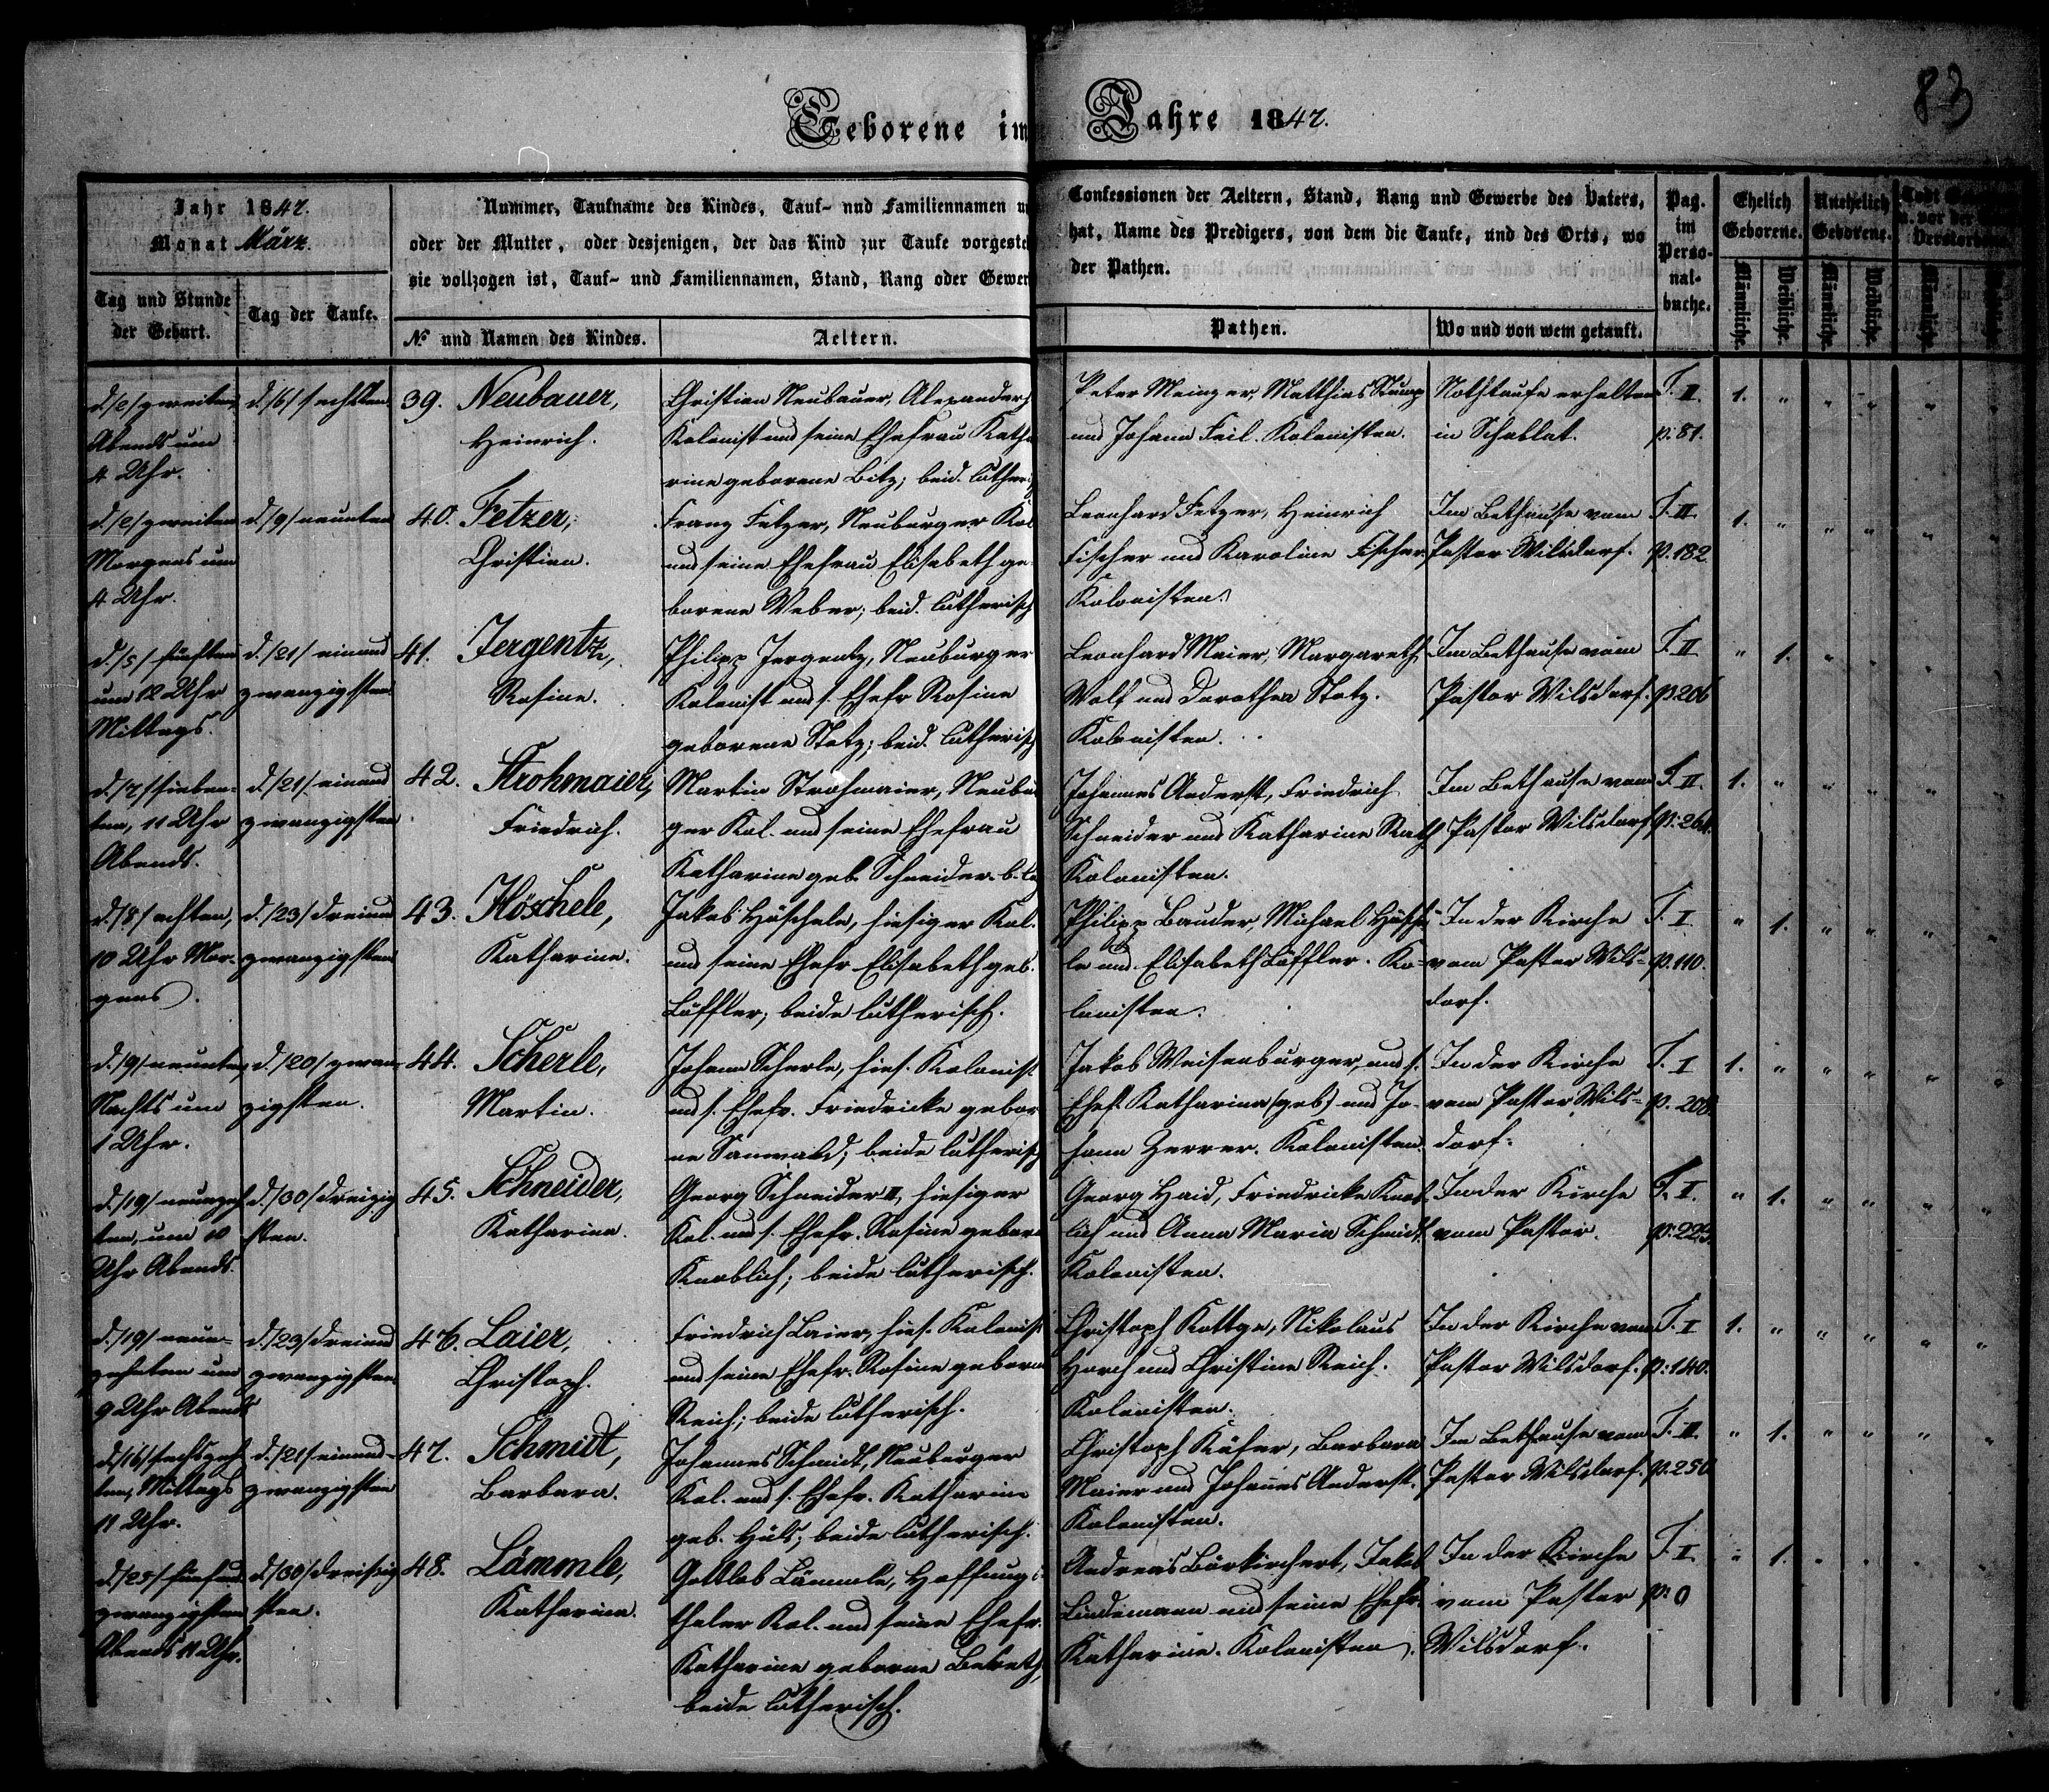 83
Geborene im Jahre 1847.
Jahr 1847.
Monat März.
Tag und Stunde der Geburt.
Tag der Taufe.
Nummer, Taufname des Kindes, Tauf- und Familiennamen
oder der Mutter, oder desjenigen, der das Kind zur Taufe vorgeste
sie vollzogen ist, Tauf- und Familiennamen, Stand, Rang oder Gewer
№ und Namen des Kindes.
Aeltern.
Confessionen der Aeltern, Stand, Rang und Gewerbe des Vaters,
hat, Name des Predigers, von dem die Taufe, und des Orts, wo
der Pathen.
Pathen.
Wo und von wem getauft.
Pag. im Perso-nal-buche.
Ehelich Geborene.
Unehelich Geborene.
Männliche.
Weibliche.
Männliche.
Weibliche.
Männliche.
d./2/ zweiten
Abends um
4 Uhr.
d./6/ sechsten
39. Neubauer,
Heinrich.
Christian Neubauer, Alexander
Kolonist und seine Ehefrau Katha
rine geborene Bitz; beid. lutheri
Peter Meinzer, Matthias Stump
und Johann Feil. Kolonisten.
Nothtaufe erhalten
in Schablat.
T. II.
p. 81.
1.
d./2/ zweiten
Morgens um
4 Uhr.
d./9/ neunten
40. Fetzer,
Christian.
Franz Fetzer, Neuburger Kol
und seine Ehefrau Elisabeth ge
borene Weber; beid. lutherisch
Leonhard Fetzer, Heinrich
Fischer und Karoline Fischer
Kolonisten.
Im Bethause vom
Pastor Wilsdorf.
T. II
p. 182
1.
d./5/ fünften
um 12 Uhr
Mittags.
d./21/ einund
zwanzigsten
41. Jergentz,
Rosine.
Philipp Jergentz, Neuburger
Kolonist und s. Ehefr Rosine
geborene Stotz; beid. lutherisch
Leonhard Maier, Margareth
Wolf und Dorothea Stotz.
Kolonisten.
Im Bethause vom
Pastor Wilsdorf.
T. II
p. 206
1.
d./7/ sieben-
ten, 11 Uhr
Abends.
d./21/ einund
zwanzigsten
42. Strohmaier,
Friedrich.
Martin Strohmaier, Neubur
ger Kol. und seine Ehefrau
Katharine geb. Schneider. b. l
Johannes Anderst, Friedrich
Schneider und Katharine Rath
Kolonisten.
Im Bethause vom
Pastor Wilsdorf
T. II.
p. 264.
1.
d./8/ achten,
10 Uhr Mor-
gens.
d./23/ dreiund
zwanzigsten
43. Höschele,
Katharine.
Jakob Höschele, hiesiger Kol.
und seine Ehefr Elisabeth geb.
Löffler; beide lutherisch.
Philipp Bauder, Michael Hösche
le und Elisabeth Löffler. Ko-
lonisten.
In der Kirche
vom Pastor Wils-
dorf.
T. I
p. 110.
1.
d./9/ neunten
Nachts um
1 Uhr.
d./20/ zwan-
zigsten.
44. Scherle,
Martin.
Johann Scherle, hies. Kolonist
und s. Ehefr. Friedricke gebor
ne Sanwald; beide lutherisch
Jakob Weisenburger, und s.
Ehefr. Katharina (geb) und Jo-
hann Zerrer. Kolonisten.
In der Kirche
vom Pastor Wils-
dorf.
T. I
p. 208.
1.
d./19/ neunzeh
ten, um 10
Uhr Abends.
d./30/ dreizig
sten.
45. Schneider,
Katharina.
Georg Schneider II, hiesiger
Kol. und s. Ehefr. Rosine gebore
Knoblich; beide lutherisch.
Georg Haid, Friedricke Knob
lich und Anna Maria Schmidt
Kolonisten.
In der Kirche
vom Pastor.
T. I.
p. 223.
1.
d./19/ neun-
zehnten um
9 Uhr Abends
d./23/ dreiund
zwanzigsten
46. Laier,
Christoph.
Friedrich Laier, hies. Kolonist
und seine Ehefr. Rosine gebore
Reich; beide lutherisch.
Christoph Kottge, Nikolaus
Horch und Christine Reich.
Kolonisten.
In der Kirche vom
Pastor Wilsdorf.
T. I
p. 140.
1.
d./16/ sechszeh
ten, Mittags
11 Uhr.
d./21/ einund-
zwanzigsten
47. Schmidt,
Barbara.
Johannes Schmidt, Neuburger
Kol. und s. Ehefr. Katharine
geb. Hüls; beide lutherisch.
Christoph Käfer, Barbara
Maier und Johannes Anderst.
Kolonisten.
Im Bethause vom
Pastor Wilsdorf.
T. II
p. 250
1.
d./25/ fünfund
zwanzigsten
Abends 11 Uhr.
d./30/ dreißig
sten.
48. Lämmle,
Katharina.
Gottlob Lämmle, Hoffnungs-
thaler Kol. und seine Ehefr.
Katharine geborne
beide lutherisch.
Andreas Jakob
Lindemann und seine Ehefr.
Katharine. Kolonisten.
In der Kirche
vom Pastor
Wilsdorf.
T. I
p. 0
1.